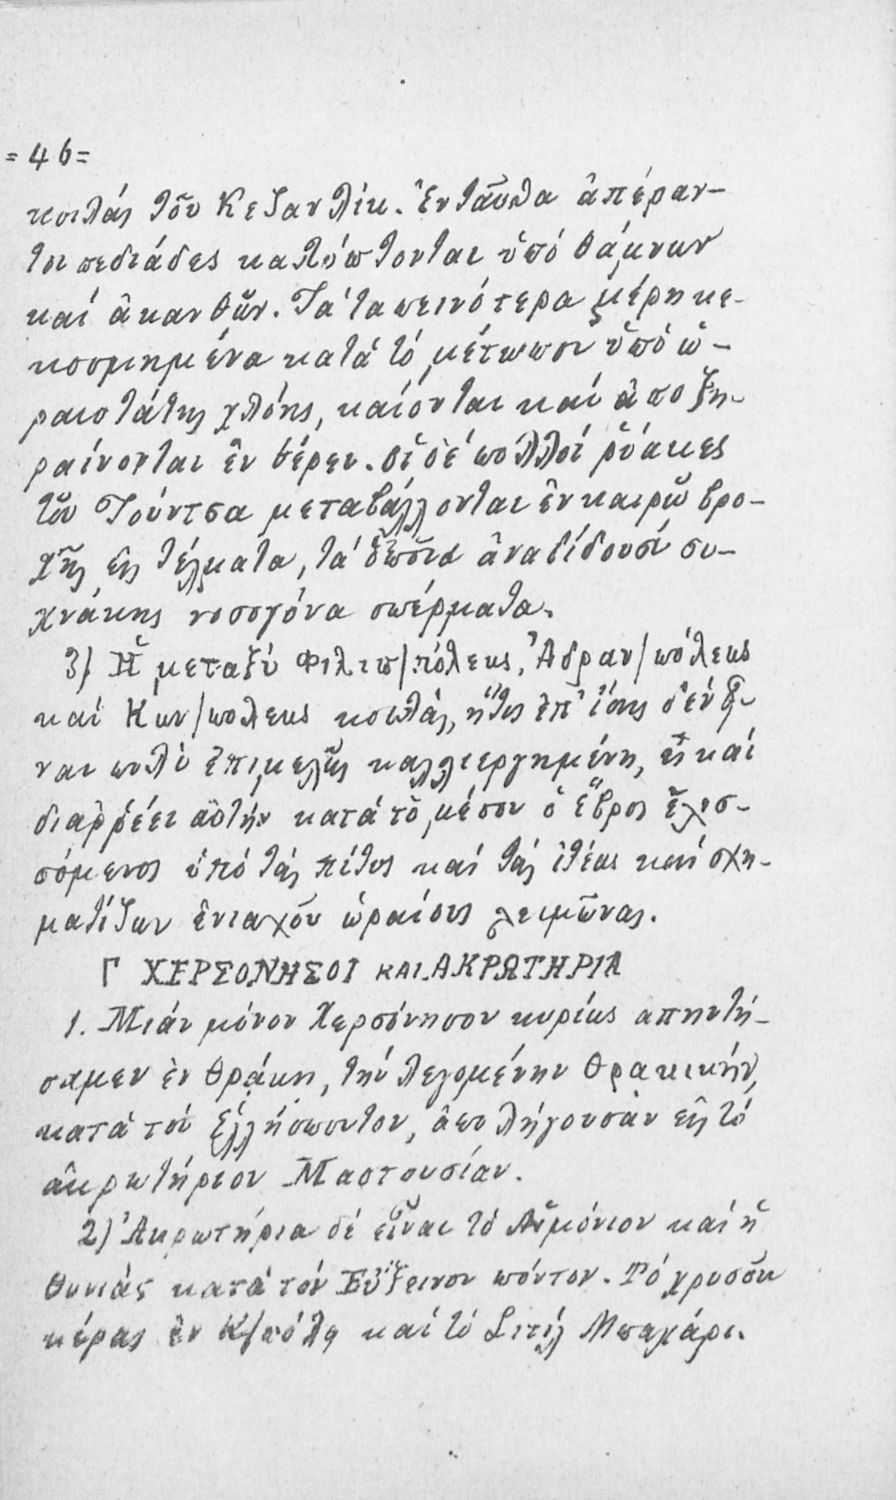 =46=
κοιλάς τοῦ Κεζανλίκ. Ἐνταῦθα ἀπέραν-
τοι πεδιάδες καλύπτονται ὑπό θάμνων
καί ἀκανθῶν. Τά ταπεινότερα μέρη κε-
κοσμημένα κατά τό μέτωπον ὑπό ὡ-
ραιοτάτης χλόης, καίονται καί ἀποξη-
ραίνονται ἐν θέρει. Οἱ δέ πολλοί ῥύακες
τοῦ Τούντσα μεταβάλλονται ἐν καιρῷ βρο-
χῆς εἰς τέλματα, τά ὁποῖα ἀναδίδουσι συ-
χνάκις νοσογόνα σπέρματα.
3) Ἡ μεταξύ Φιλιπ/πόλεως, Ἀδριαν/πόλεως
καί Κων/πολεως κοιλάς, ἥτις ἐπ' ἴσης δέν εἶ-
ναι πολύ ἐπιμελῶς καλλιεργημένη, εἰ καί
διαῤῥέει αὐτήν κατά τό μέσον ὁ Ἕβρος ἑλισ-
σόμενος ὑπό τάς πίτυς καί τάς ἰτέας καί σχη-
ματίζων ἐνιαχοῦ ὡραίους λειμῶνας.
Γ ΧΕΡΣΟΝΗΣΟΙ ΚΑΙ ΑΚΡΩΤΗΡΙΑ
1. Μιάν μόνον Χερσόνησον κυρίως απηντή-
σαμεν ἐν Θράκῃ, τήν λεγομένην Θρακικήν,
κατά τόν Ἑλλήσποντον, ἀπολήγουσαν εἰς τό
ἀκρωτήριον Μαστουσίαν.
2) Ἀκρωτήρια δέ εἶναι τό Αἱμόνιον καί ἡ
Θυνιάς κατά τόν Εὔξεινον πόντον. Τό χρυσοῦν
κέρας ἐν Κ/πόλῃ καί τό Σιτίλ Μπαχάρι.